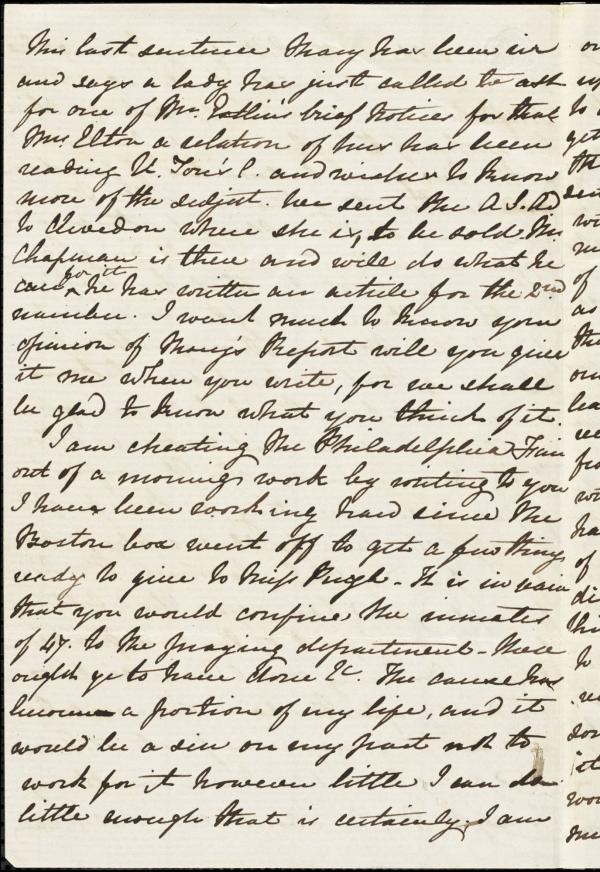 This last sentence Mary has been in
and says a lady has just called to ask
for one of Mr. Estlin's brief Notices for that
Mrs. Elton a relation of hers has been
reading U. Tom's C. and wishes to know
more of the subject. We sent the A.S. Ad
to Clevedon where she is, to be sold. Mr
Chapman is there and will do what he
can for it he has written an article for the 2nd
number. I want much to know your
opinion of Mary's Report will you give
it me when you write, for we shall
be glad to know what you think of it.
I am cheating the Philadelphia Fair
out of a mornings work by writing to you
I have been working hard since the
Boston box went off to get a few things
ready to give to Miss Pugh - It is in vain
that you would confine the inmates
of 47. to the praying department - these
ought ye to have done &c. The cause has
become a portion of my life, and it
would be a sin on my part not to
work for it however little I can do
little enough that is certainly, I am